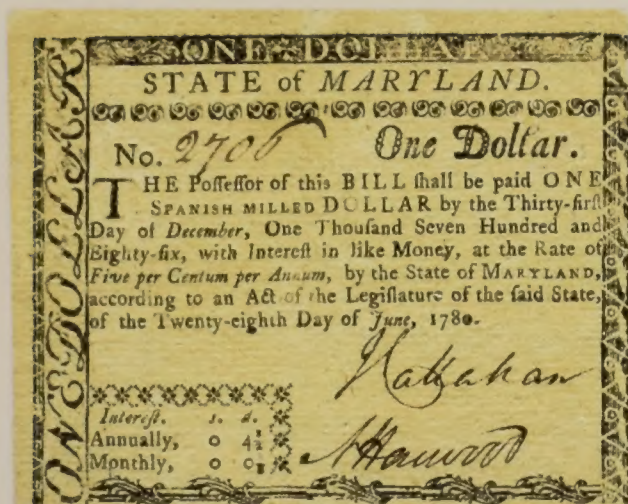 ONE DOLLAR
ONE DOLLAR
STATE of MARYLAND.
No. 2706 One Dollar.
THE Poſſeſſor of this BILL ſhall be paid ONE
SPANISH MILLED DOLLAR by the Thirty-firſt
Day of December, One Thouſand Seven Hundred and
Eighty-ſix, with Intereſt in like Money, at the Rate of
Five per Centum per Annum, by the State of MARYLAND,
according to an Act of the Legiſlature of the ſaid State,
of the Twenty-eighth Day of June, 1780.
J Callahan
Intereſt. s. d.
Annually, 0 4½
N Harwood
Monthly, 0 0⅜